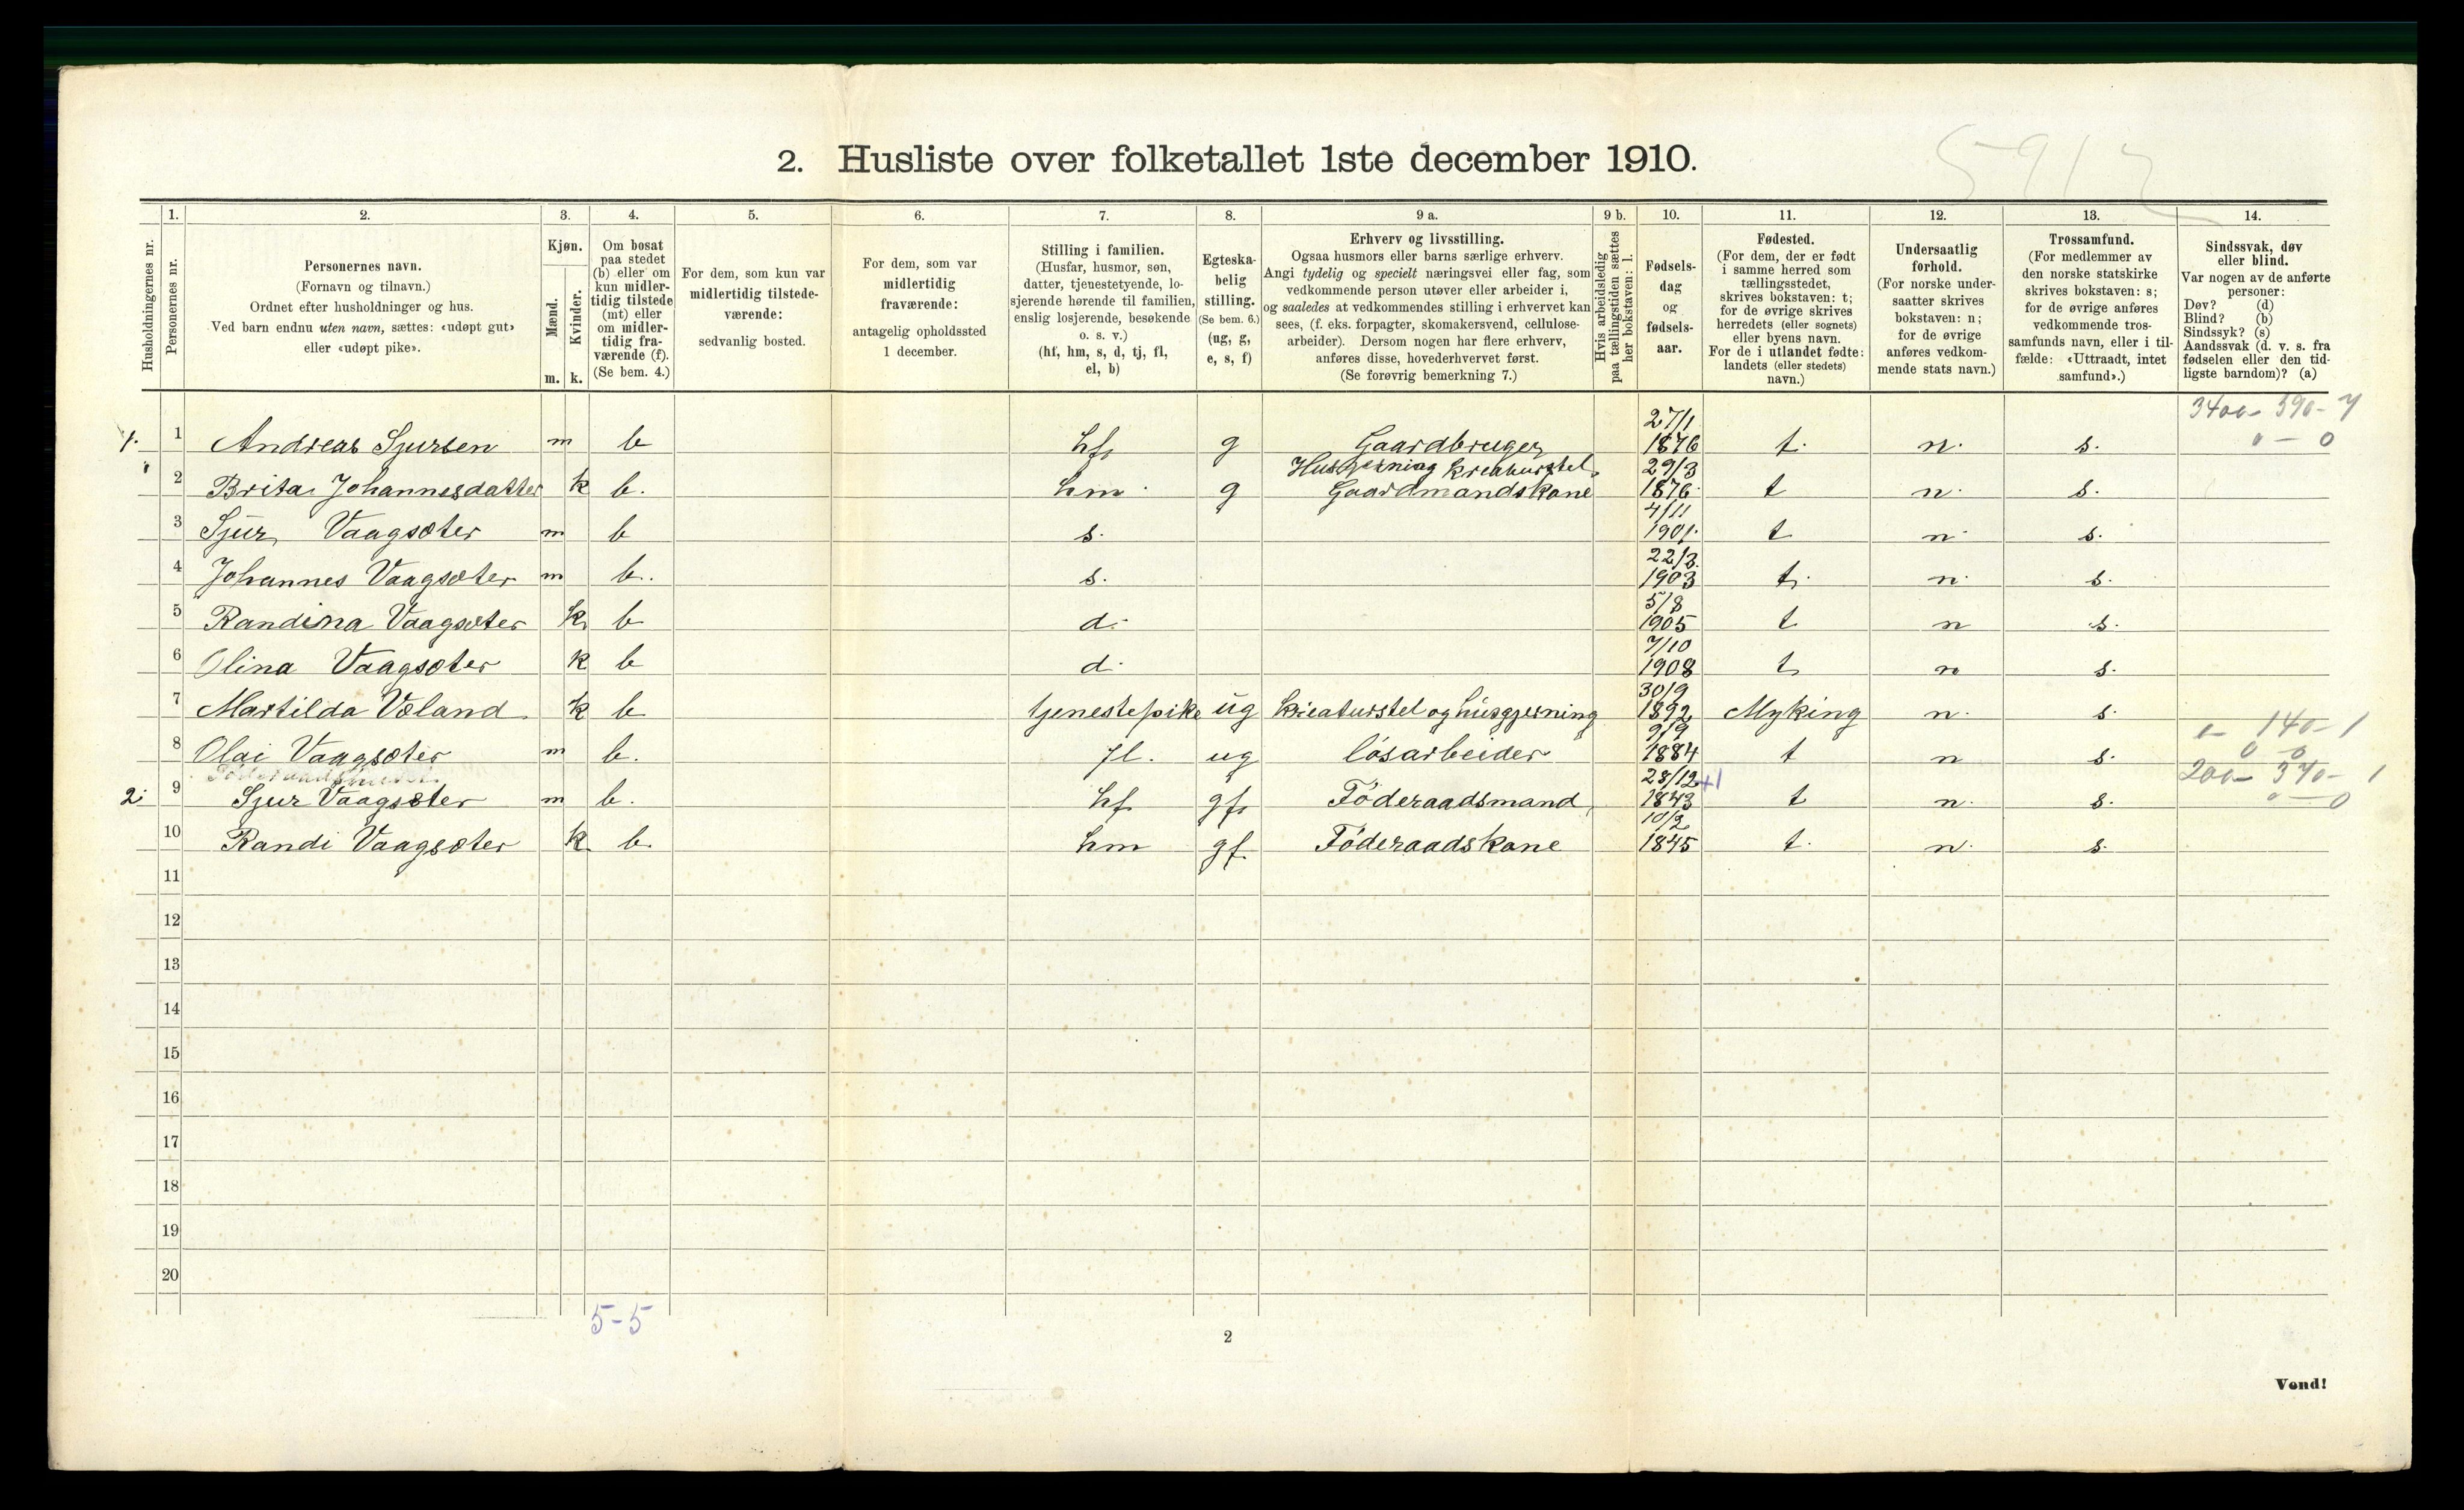 5912
2. Husliste over folketallet 1ste december 1910.
1. 2. 3. 4. 5. 6. 7. 8. 9 a. 9 b. 10. 11. 12. 13. 14.
Husholdningernes nr.
Personernes nr.
Personernes navn.
(Fornavn og tilnavn.)
Ordnet efter husholdninger og hus.
Ved barn endnu uten navn, sættes: «udøpt gut»
eller «udøpt pike».
Kjøn.
Mænd.
Kvinder.
m. k.
Om bosat
paa stedet
(b) eller om
kun midler-
tidig tilstede
(mt) eller
om midler-
tidig fra-
værende (f).
(Se bem. 4.)
For dem, som kun var
midlertidig tilstede-
værende:
sedvanlig bosted.
For dem, som var
midlertidig
fraværende:
antagelig opholdssted
1 december.
Stilling i familien.
(Husfar, husmor, søn,
datter, tjenestetyende, lo-
sjerende hørende til familien,
enslig losjerende, besøkende
o. s. v.)
(hf, hm, s, d, tj, fl,
el, b)
Egteska-
belig
stilling.
(Se bem. 6.)
(ug, g,
e, s, f)
Erhverv og livsstilling.
Ogsaa husmors eller barns særlige erhverv.
Angi tydelig og specielt næringsvei eller fag, som
vedkommende person utøver eller arbeider i,
og saaledes at vedkommendes stilling i erhvervet kan
sees, (f. eks. forpagter, skomakersvend, cellulose-
arbeider). Dersom nogen har flere erhverv,
anføres disse, hovederhvervet først.
(Se forøvrig bemerkning 7.)
Hvis arbeidsledig
paa tællingstiden sættes
her bokstaven: l.
Fødsels-
dag
og
fødsels-
aar.
Fødested.
(For dem, der er født
i samme herred som
tællingsstedet,
skrives bokstaven: t;
for de øvrige skrives
herredets (eller sognets)
eller byens navn.
For de i utlandet fødte:
landets (eller stedets)
navn.)
Undersaatlig
forhold.
(For norske under-
saatter skrives
bokstaven: n;
for de øvrige
anføres vedkom-
mende stats navn.)
Trossamfund.
(For medlemmer av
den norske statskirke
skrives bokstaven: s;
for de øvrige anføres
vedkommende tros-
samfunds navn, eller i til-
fælde: «Uttraadt, intet
samfund».)
Sindssvak, døv
eller blind.
Var nogen av de anførte
personer:
Døv? (d)
Blind? (b)
Sindssyk? (s)
Aandssvak (d. v. s. fra
fødselen eller den tid-
ligste barndom)? (a)
3400 - 590 - 7
0 - 0
1. 1 Andreas Sjursen m b hf g Gaardbruger 27/1 1876 t. n. s.
2 Brita Johannesdatter k b. hm g Husgjerning kreaturstel Gaardmandskone 29/3 1876 t n. s.
3 Sjur Vaagsæter m b s. 4/11 1901. t n s.
4 Johannes Vaagsæter m b. s. 22/3 1903 t. n. s.
5 Randina Vaagsæter k b d. 5/8 1905 t n s.
6 Olina Vaagsæter k b d. 7/10 1908 t n s.
7 Martilda Væland k b tjenestepike ug kreaturstel og husgjerning 30/9 1892 Myking n. s.
8 Olai Vaagsæter m b. fl. ug løsarbeider 9/9 1884 t n s. 140 - 1
0 - 0
Føderaadshuset
2. 9 Sjur Vaagsæter m b. hf gf Føderaadsmand 28/12 1843 +1 t n. s. 200 - 340 - 1
0 - 0
10 Randi Vaagsæter k b. hm gf Føderaadskone 10/2 1845 t. n. s.
11
12
13
14
15
16
17
18
19
20
5-5
2
Vend!